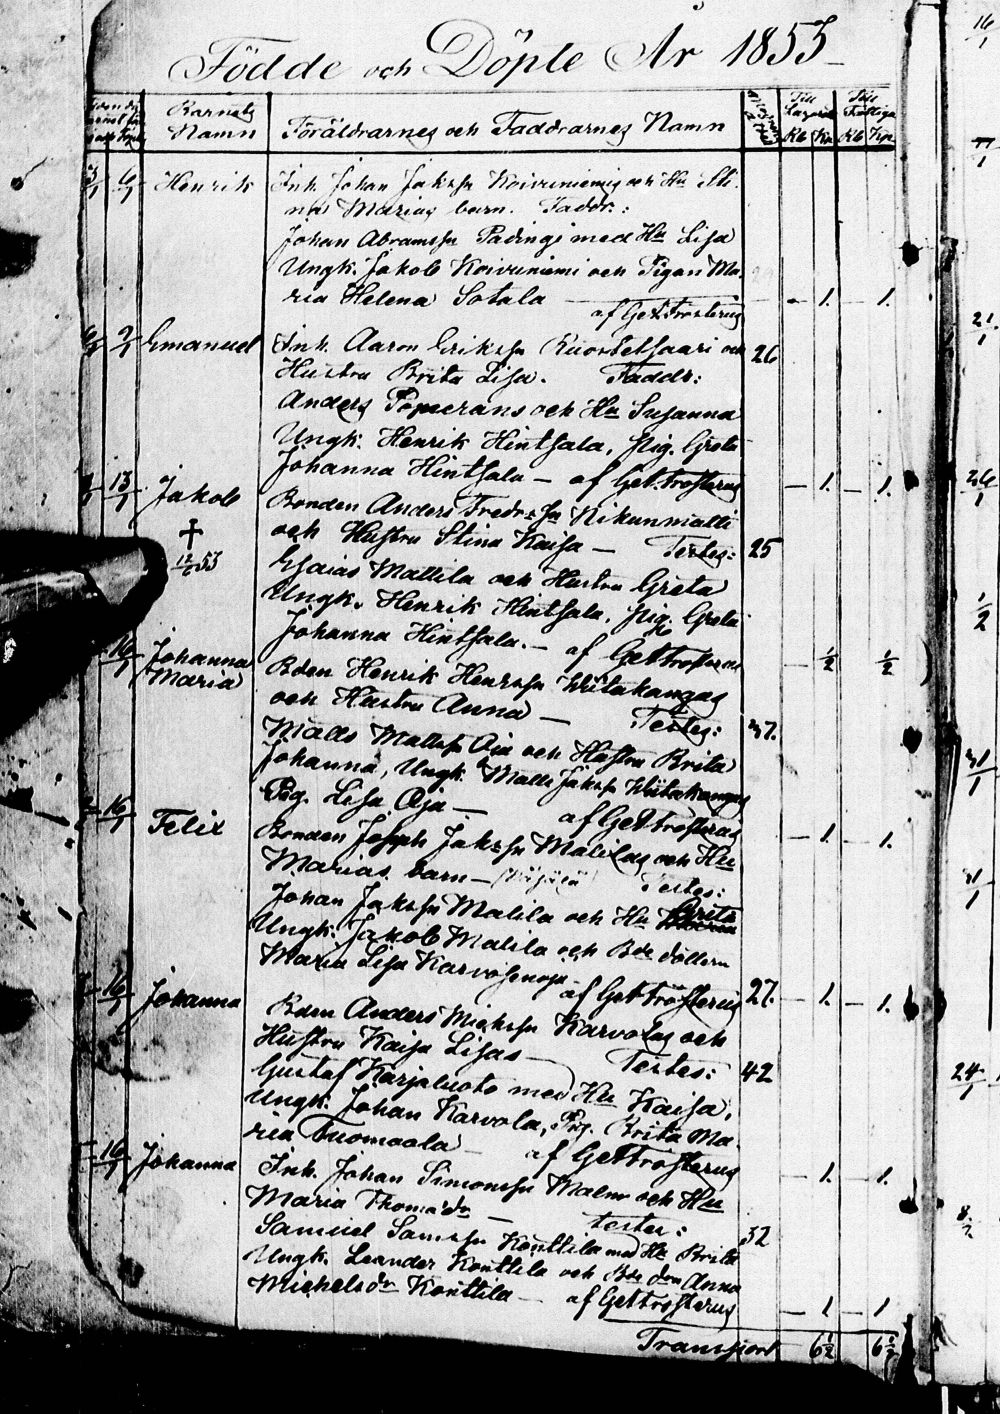 Födde och Döpte År 1853
Barnets Namn
Föräldrarnes och Faddrarnes Namn
Till Lazaret Rb Kop
Till Fattiga Rb Kop
Henrik Inh. Johan Jakssn Koivuniemis och Hu Sti-
nas Marias barn. Faddr.:
Johan Abramssn Padingi med Hu Lisa
Ungk. Jakob Koivuniemi och Pigan Ma-
ria Helena Sotala 1. 1.
af Get. Trosterus
Emanuel Inh. Aaron Erikssn Ruortetsaari och 26
Hustru Brita Lisa. Faddr:
Anders Pomerans och Hu Susanna
Ungk. Henrik Hintsala, Pig. Greta
Johanna Hintsala — af Get. Trosterus 1. 1.
13/1 Jakob Bonden Anders Fredrssn Nikunmatti
och Hustru Stina Kaisa — Testes: 25
† 12/6 53
Esaias Mattila och Hustru Greta
Ungk. Henrik Hintsala, Pig. Greta
Johanna Hintsala. — af Get Trosterus ½ ½
16/1 Johanna Maria Bden Henrik Henrssn Wiitakangas
och Hustru Anna — Testes: 37.
Matts Mattssn Oja och Hustru Brita
Johanna, Ungk. Matts Jakssn Wiitakangas
Pig. Lisa Oja — af Get Trosterus 1. 1.
16/1 Felix Bonden Joseph Jakssn Matilas och Hu
Marias barn — Testes:
Johan Jakssn Matila och Hu Brita
Ungk. Jakob Matila och Bde dottern
Maria Lisa Karvosenoja
af Get Trosterus 27. 1. 1.
16/1 Johanna Bden Anders Michssn Karvolas och
Hustru Kaisa Lisas — Testes: 42
Gustaf Karjaluoto med Hu Kaisa,
Ungk. Johan Karvola, Pig. Brita Ma-
ria Tuomaala — af Get Trosterus 1. 1.
16/1 Johanna Inh. Johan Simonssn Malm och Hu
Maria Thomädr — testes: 32
Samuel Samssn Konttila med Hu Brita
Ungk. Leander Konttila och Bde don Anna
Michelsdr Konttila — af Get Trosterus 1 1
Transport 6½ 6½